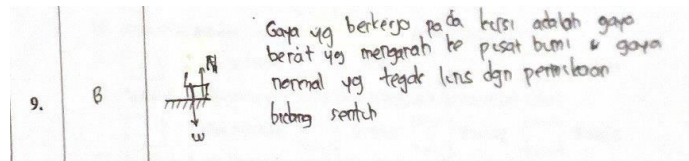 9.
B
N
w
Gaya yg berkerja pada kursi adalah gaya
berat yg mengarah ke pusat bumi & gaya
normal yg tegak lurus dgn permukaan
bidang sentuh